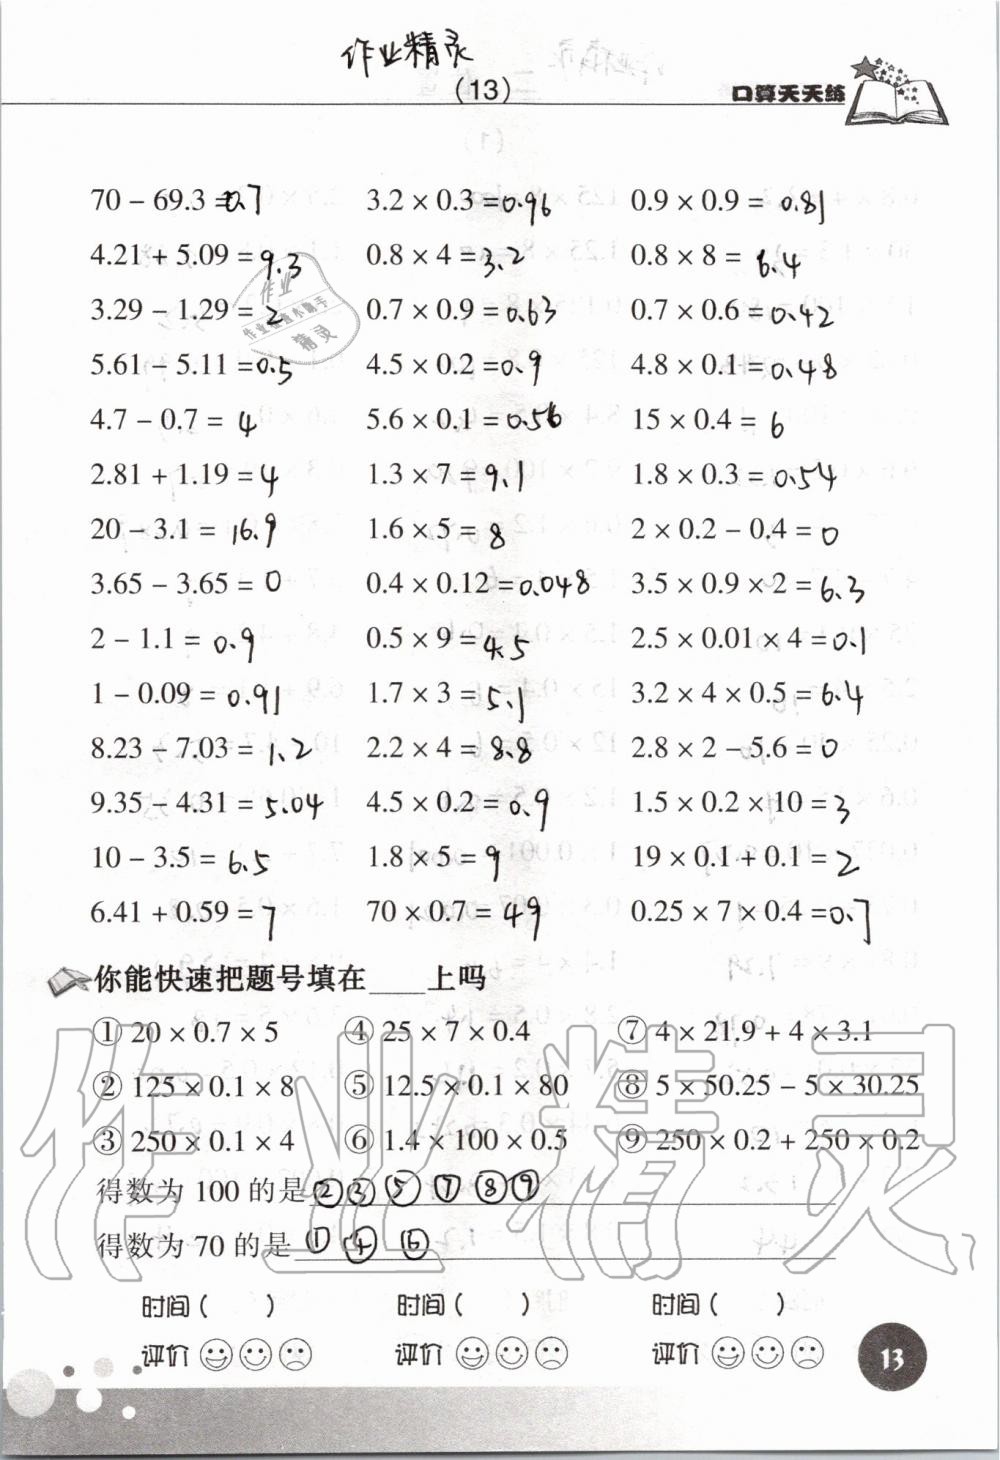 作业精灵
(13)
口算天天练
70 − 69.3 = 0.7 3.2 × 0.3 = 0.96 0.9 × 0.9 = 0.81
4.21 + 5.09 = 9.3 0.8 × 4 = 3.2 0.8 × 8 = 6.4
3.29 − 1.29 = 2 0.7 × 0.9 = 0.63 0.7 × 0.6 = 0.42
5.61 − 5.11 = 0.5 4.5 × 0.2 = 0.9 4.8 × 0.1 = 0.48
4.7 − 0.7 = 4 5.6 × 0.1 = 0.56 15 × 0.4 = 6
2.81 + 1.19 = 4 1.3 × 7 = 9.1 1.8 × 0.3 = 0.54
20 − 3.1 = 16.9 1.6 × 5 = 8 2 × 0.2 − 0.4 = 0
3.65 − 3.65 = 0 0.4 × 0.12 = 0.048 3.5 × 0.9 × 2 = 6.3
2 − 1.1 = 0.9 0.5 × 9 = 4.5 2.5 × 0.01 × 4 = 0.1
1 − 0.09 = 0.91 1.7 × 3 = 5.1 3.2 × 4 × 0.5 = 6.4
8.23 − 7.03 = 1.2 2.2 × 4 = 8.8 2.8 × 2 − 5.6 = 0
9.35 − 4.31 = 5.04 4.5 × 0.2 = 0.9 1.5 × 0.2 × 10 = 3
10 − 3.5 = 6.5 1.8 × 5 = 9 19 × 0.1 + 0.1 = 2
6.41 + 0.59 = 7 70 × 0.7 = 49 0.25 × 7 × 0.4 = 0.7
你能快速把题号填在____上吗
① 20 × 0.7 × 5 ④ 25 × 7 × 0.4 ⑦ 4 × 21.9 + 4 × 3.1
② 125 × 0.1 × 8 ⑤ 12.5 × 0.1 × 80 ⑧ 5 × 50.25 − 5 × 30.25
③ 250 × 0.1 × 4 ⑥ 1.4 × 100 × 0.5 ⑨ 250 × 0.2 + 250 × 0.2
得数为 100 的是 ②③⑤⑦⑧⑨
得数为 70 的是 ①④⑥
时间（ ） 时间（ ） 时间（ ）
评价 评价 评价
13
作业精灵